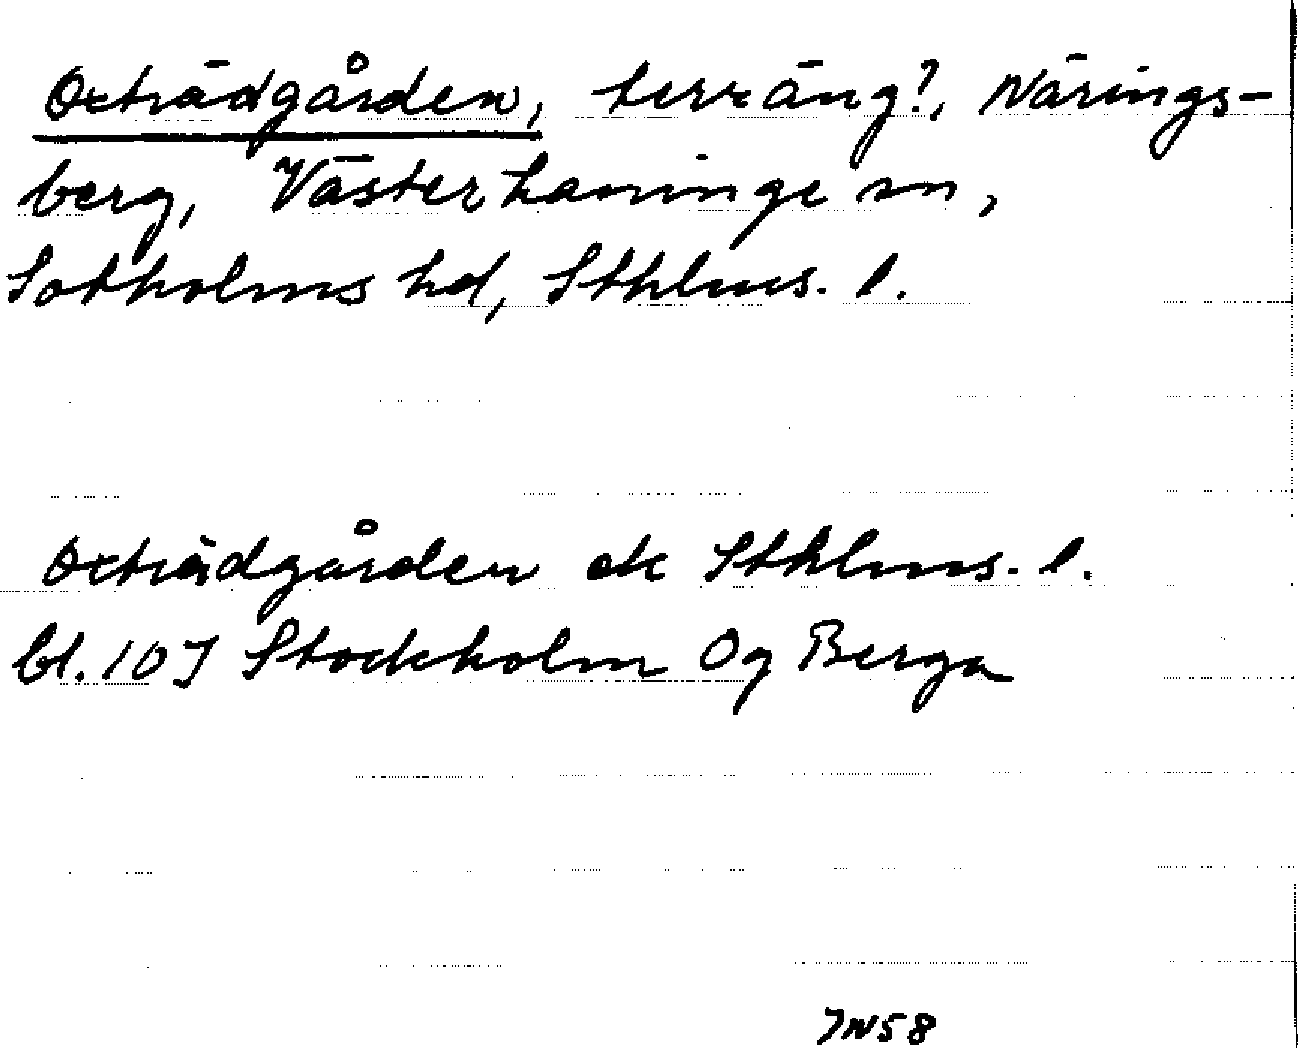 Oxträdgården, terräng?, Närings-
berg, Västerhaninge sn,
Sotholms hd, Sthlms. l.
Oxträdgården ek Sthlms. l.
bl. 10J Stockholm Og Berga
JN58